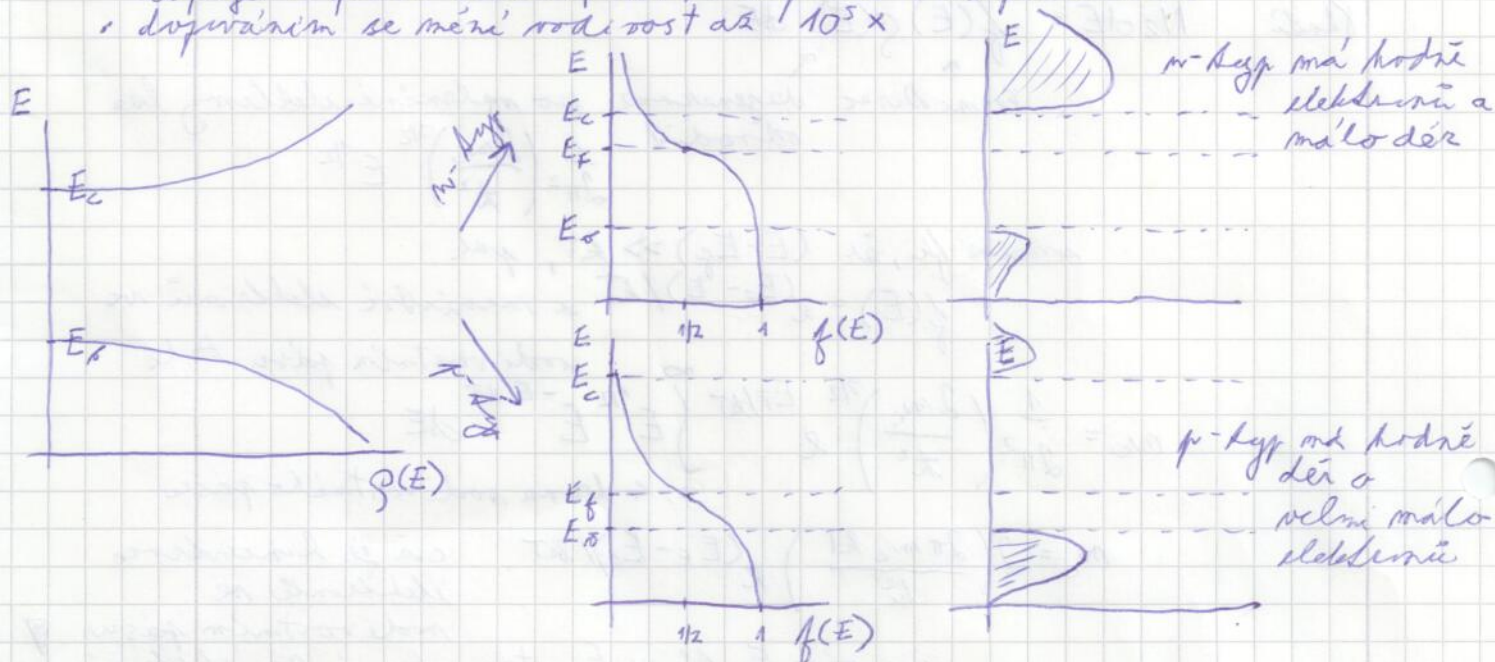 • dopováním se mění vodivost až 10⁵ x
E
E_c
E_v
ρ(E)
n-typ
p-typ
E
E_c
E_f
E_v
1/2 1 f(E)
E
n-typ má hodně
elektronů a
málo děr
E
E_c
E_f
E_v
1/2 1 f(E)
E
p-typ má hodně
děr a
velmi málo
elektronů